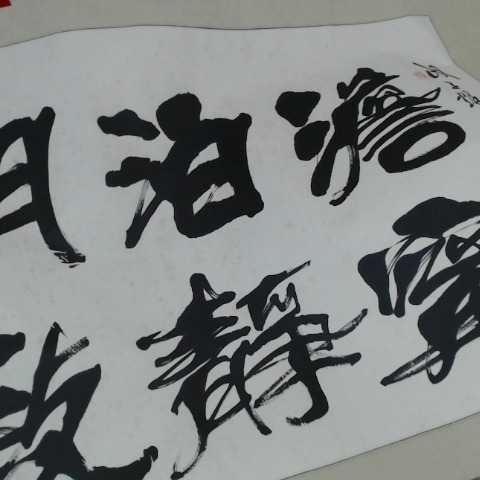 澹泊明
寧靜致